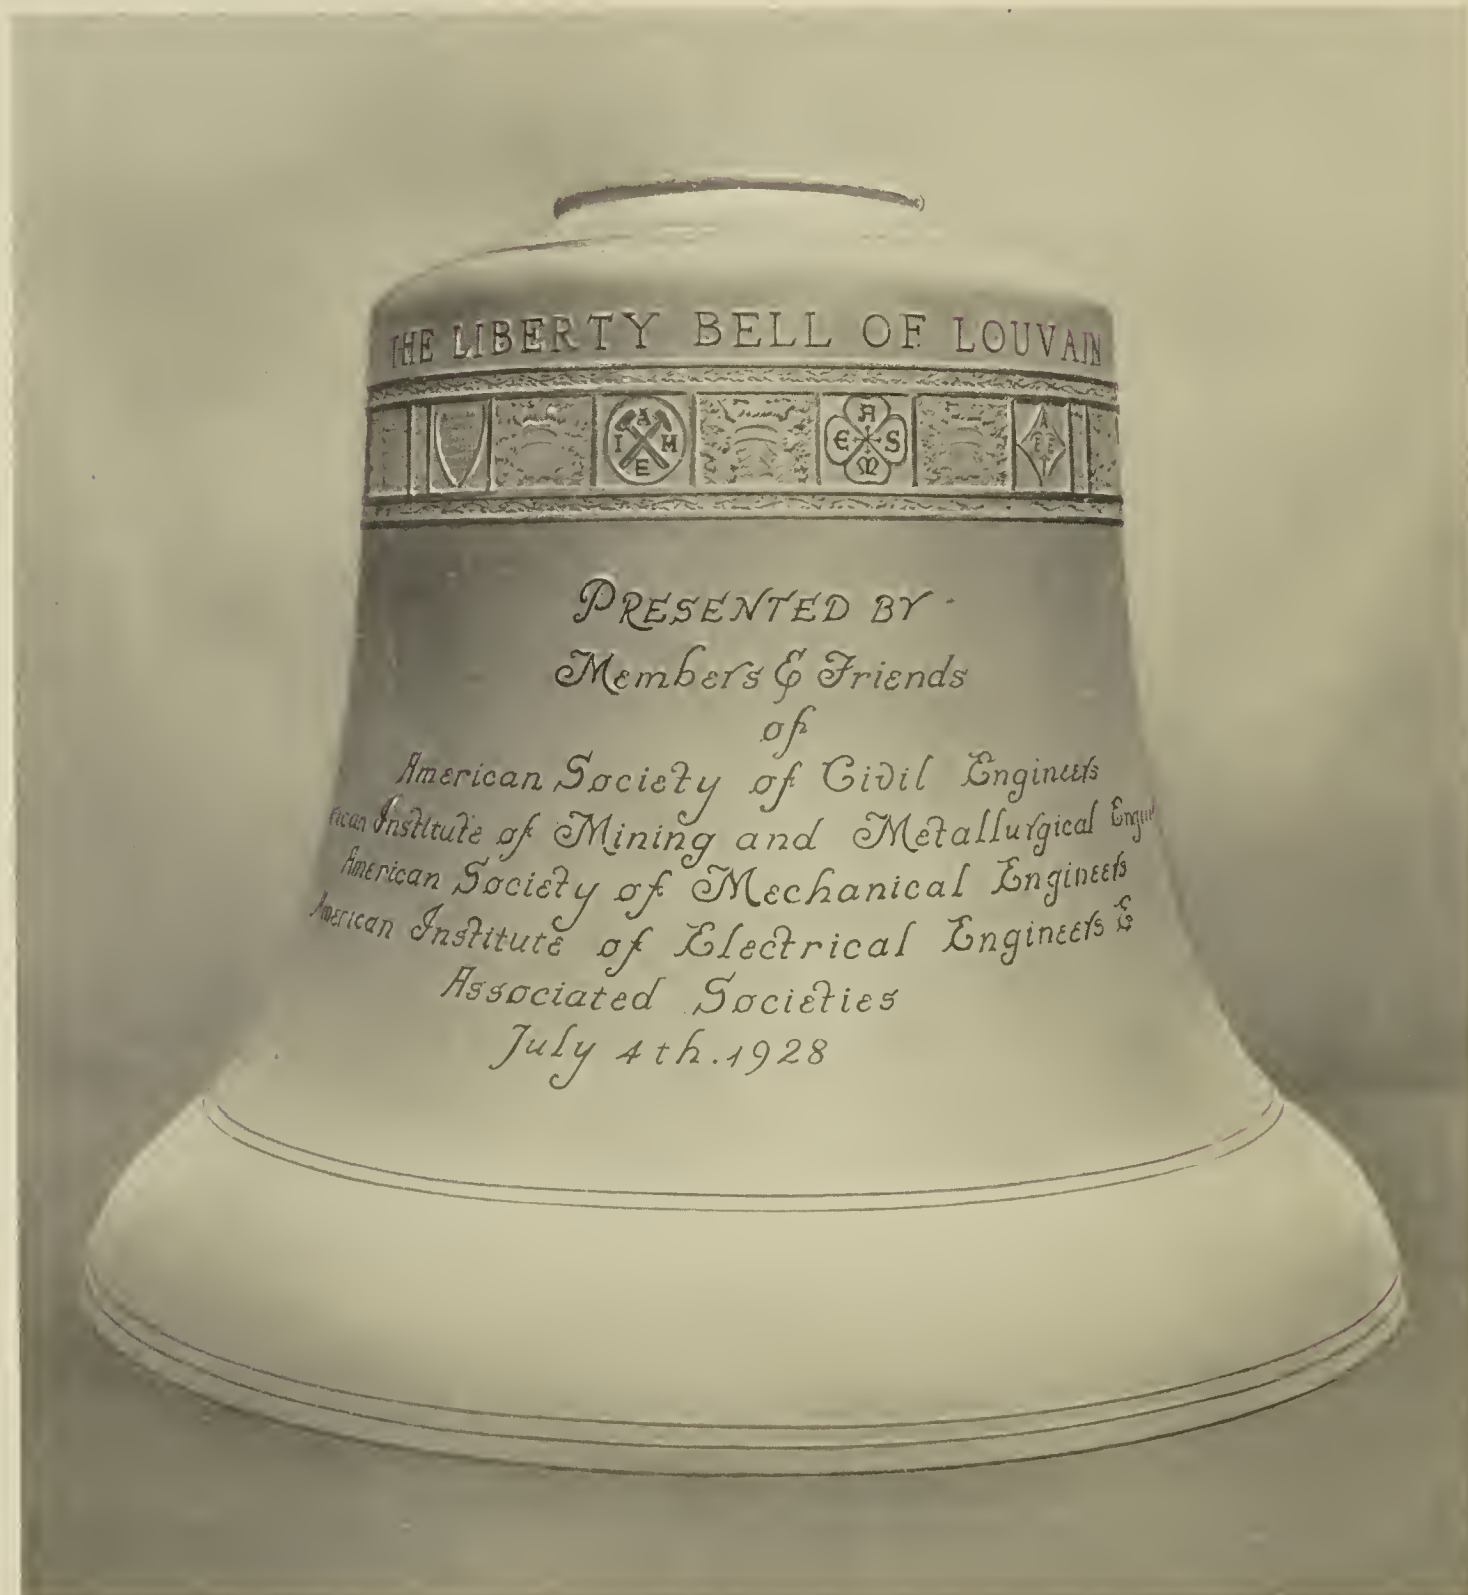 THE LIBERTY BELL OF LOUVAIN
A
I M
E
A
E S
M
PRESENTED BY
Members & Friends
of
American Society of Civil Engineers
rican Institute of Mining and Metallurgical Engin
American Society of Mechanical Engineers
American Institute of Electrical Engineers &
Associated Societies
July 4th. 1928